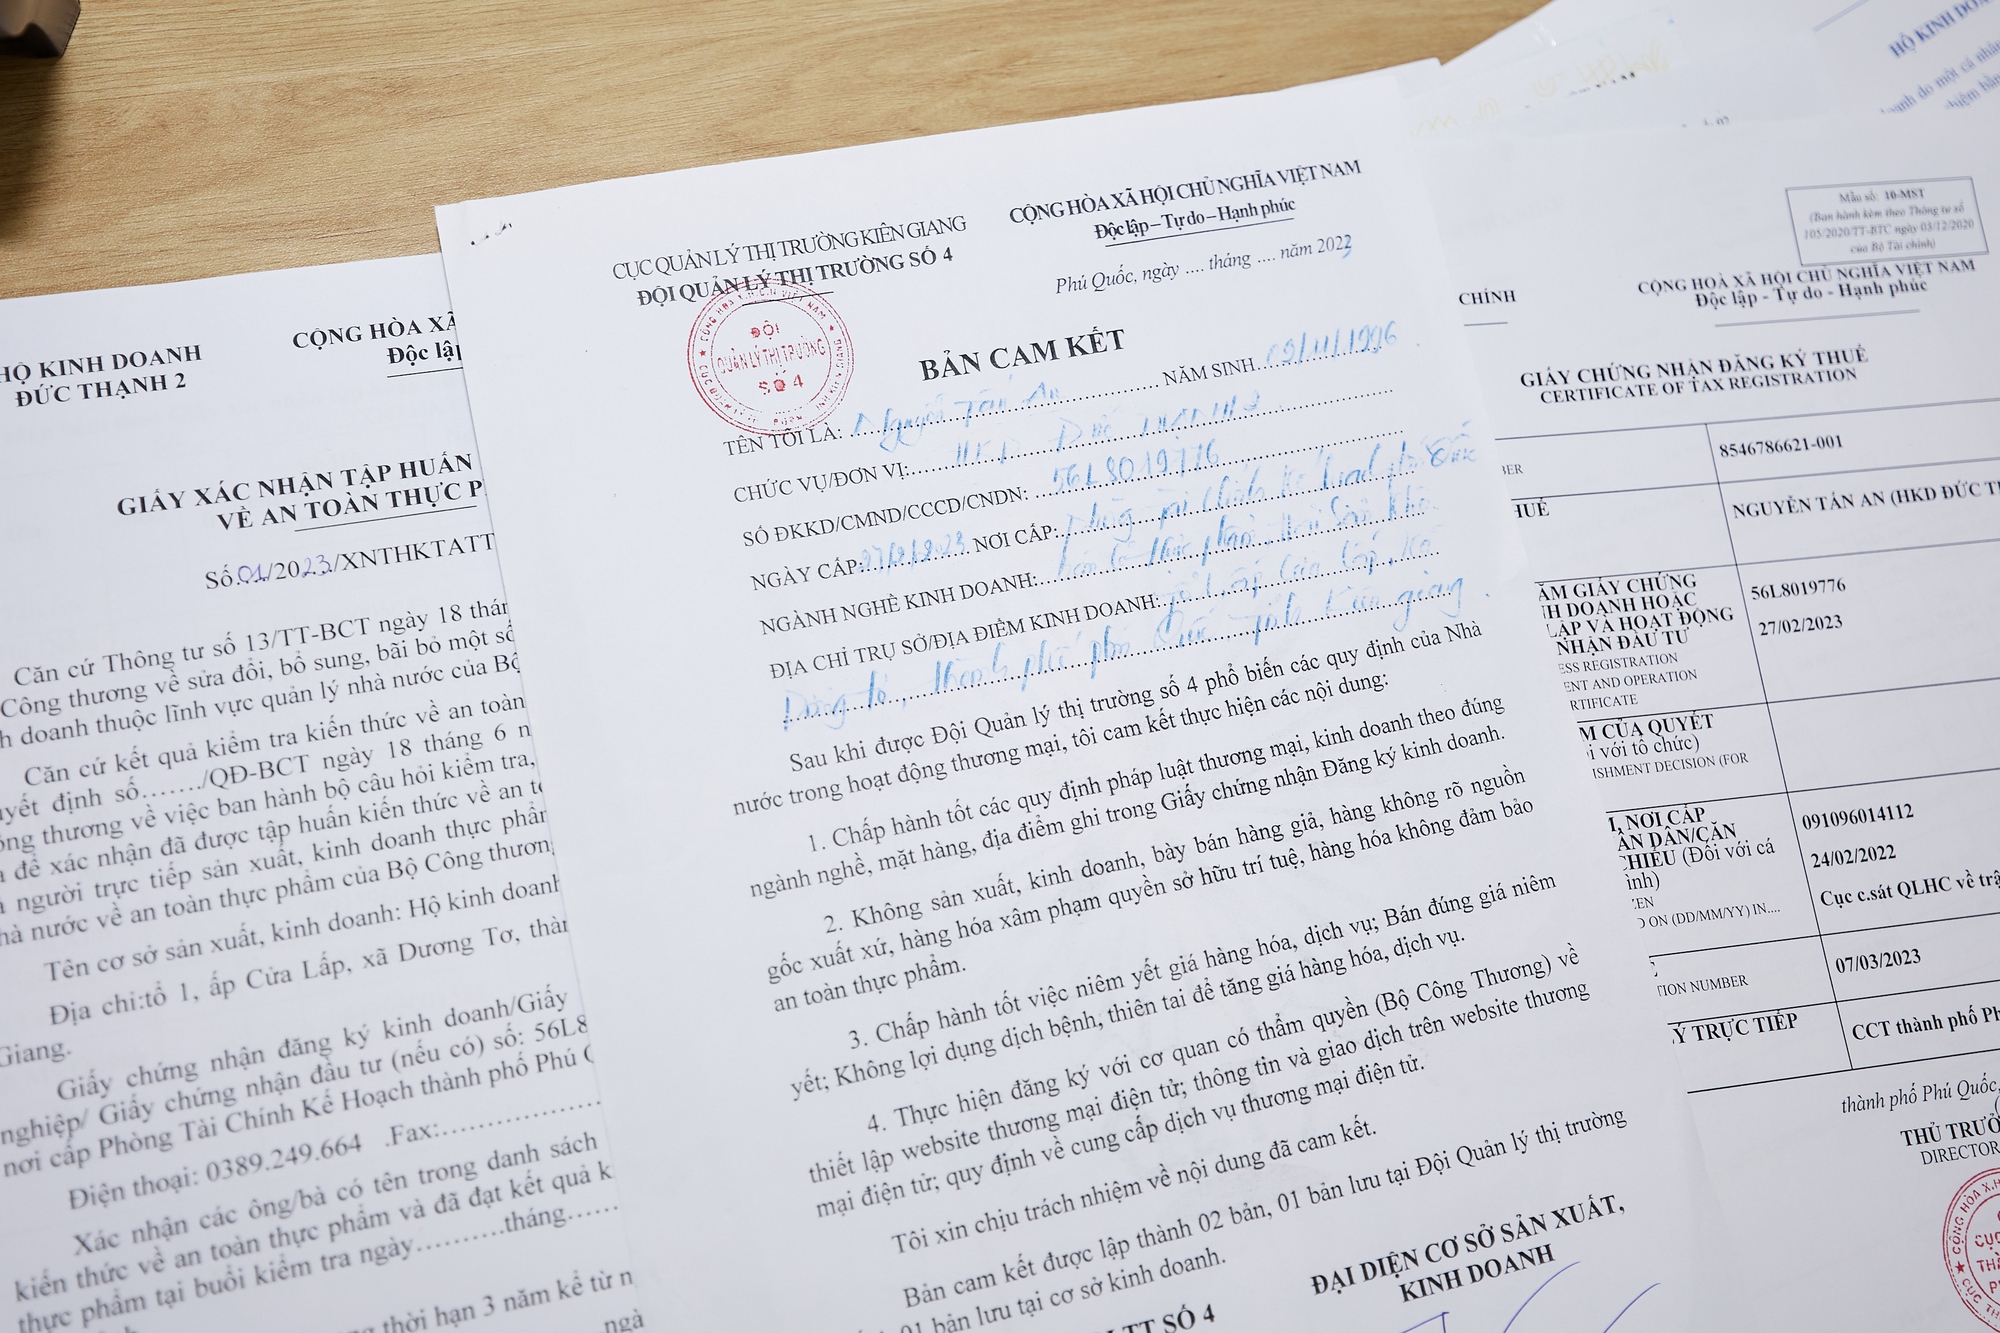 HỘ KINH DOANH
ĐỨC THẠNH 2
CỘNG HÒA XÃ
Độc lập
GIẤY XÁC NHẬN TẬP HUẤN
VỀ AN TOÀN THỰC P
Số:01/2023/XNTHKTATT
Căn cứ Thông tư số 13/TT-BCT ngày 18 thán
Công thương về sửa đổi, bổ sung, bãi bỏ một số
h doanh thuộc lĩnh vực quản lý nhà nước của Bộ
Căn cứ kết quả kiểm tra kiến thức về an toàn
uyết định số......./QĐ-BCT ngày 18 tháng 6 n
ông thương về việc ban hành bộ câu hỏi kiểm tra,
để xác nhận đã được tập huấn kiến thức về an to
người trực tiếp sản xuất, kinh doanh thực phẩn
hà nước về an toàn thực phẩm của Bộ Công thương
Tên cơ sở sản xuất, kinh doanh: Hộ kinh doanh
Địa chỉ:tổ 1, ấp Cửa Lấp, xã Dương Tơ, thàn
Giang.
Giấy chứng nhận đăng ký kinh doanh/Giấy
nghiệp/ Giấy chứng nhận đầu tư (nếu có) số: 56L8
nơi cấp Phòng Tài Chính Kế Hoạch thành phố Phú Q
Điện thoại: 0389.249.664 .Fax:....................
Xác nhận các ông/bà có tên trong danh sách
kiến thức về an toàn thực phẩm và đã đạt kết quả k
thực phẩm tại buổi kiểm tra ngày..........tháng......
thời hạn 3 năm kể từ n
ngà
CỤC QUẢN LÝ THỊ TRƯỜNG KIÊN GIANG
ĐỘI QUẢN LÝ THỊ TRƯỜNG SỐ 4
CỘNG HÒA XÃ HỘI CHỦ NGHĨA VIỆT NAM
Độc lập – Tự do – Hạnh phúc
Phú Quốc, ngày .... tháng .... năm 2023
ĐỘI
QUẢN LÝ THỊ TRƯỜNG
SỐ 4
BẢN CAM KẾT
TÊN TÔI LÀ: Nguyễn Tấn An NĂM SINH 09/11/1996
CHỨC VỤ/ĐƠN VỊ: HKD Đức Thạnh 2
SỐ ĐKKD/CMND/CCCD/CNDN: 56L8019776
NGÀY CẤP: 27/2/2023 NƠI CẤP: Phòng Tài chính Kế hoạch phú Quốc
NGÀNH NGHỀ KINH DOANH: bán lẻ thực phẩm
ĐỊA CHỈ TRỤ SỞ/ĐỊA ĐIỂM KINH DOANH: tổ 1, ấp Cửa Lấp, xã
Dương tơ, thành phố phú Quốc tỉnh Kiên giang
Sau khi được Đội Quản lý thị trường số 4 phổ biến các quy định của Nhà
nước trong hoạt động thương mại, tôi cam kết thực hiện các nội dung:
1. Chấp hành tốt các quy định pháp luật thương mại, kinh doanh theo đúng
ngành nghề, mặt hàng, địa điểm ghi trong Giấy chứng nhận Đăng ký kinh doanh.
2. Không sản xuất, kinh doanh, bày bán hàng giả, hàng không rõ nguồn
gốc xuất xứ, hàng hóa xâm phạm quyền sở hữu trí tuệ, hàng hóa không đảm bảo
an toàn thực phẩm.
3. Chấp hành tốt việc niêm yết giá hàng hóa, dịch vụ; Bán đúng giá niêm
yết; Không lợi dụng dịch bệnh, thiên tai để tăng giá hàng hóa, dịch vụ.
4. Thực hiện đăng ký với cơ quan có thẩm quyền (Bộ Công Thương) về
thiết lập website thương mại điện tử; thông tin và giao dịch trên website thương
mại điện tử; quy định về cung cấp dịch vụ thương mại điện tử.
Tôi xin chịu trách nhiệm về nội dung đã cam kết.
Bản cam kết được lập thành 02 bản, 01 bản lưu tại Đội Quản lý thị trường
01 bản lưu tại cơ sở kinh doanh.
LTT SỐ 4
ĐẠI DIỆN CƠ SỞ SẢN XUẤT,
KINH DOANH
HỘ KINH DOA
anh do một cá nhân
Mẫu số: 10-MST
(Ban hành kèm theo Thông tư số
105/2020/TT-BTC ngày 03/12/2020
của Bộ Tài chính)
CHÍNH
CỘNG HOÀ XÃ HỘI CHỦ NGHĨA VIỆT NAM
Độc lập - Tự do - Hạnh phúc
GIẤY CHỨNG NHẬN ĐĂNG KÝ THUẾ
CERTIFICATE OF TAX REGISTRATION
BER
8546786621-001
HUẾ
NGUYỄN TẤN AN (HKD ĐỨC TH
ĂM GIẤY CHỨNG
NH DOANH HOẶC
LẬP VÀ HOẠT ĐỘNG
NHẬN ĐẦU TƯ
ESS REGISTRATION
ENT AND OPERATION
RTIFICATE
56L8019776
27/02/2023
M CỦA QUYẾT
i với tổ chức)
ISHMENT DECISION (FOR
, NƠI CẤP
ÂN DÂN/CĂN
CHIẾU (Đối với cá
ình)
EN
D ON (DD/MM/YY) IN....
091096014112
24/02/2022
Cục c.sát QLHC về trậ
TION NUMBER
07/03/2023
Ý TRỰC TIẾP
CCT thành phố Ph
thành phố Phú Quốc,
THỦ TRƯỞ
DIRECTOR